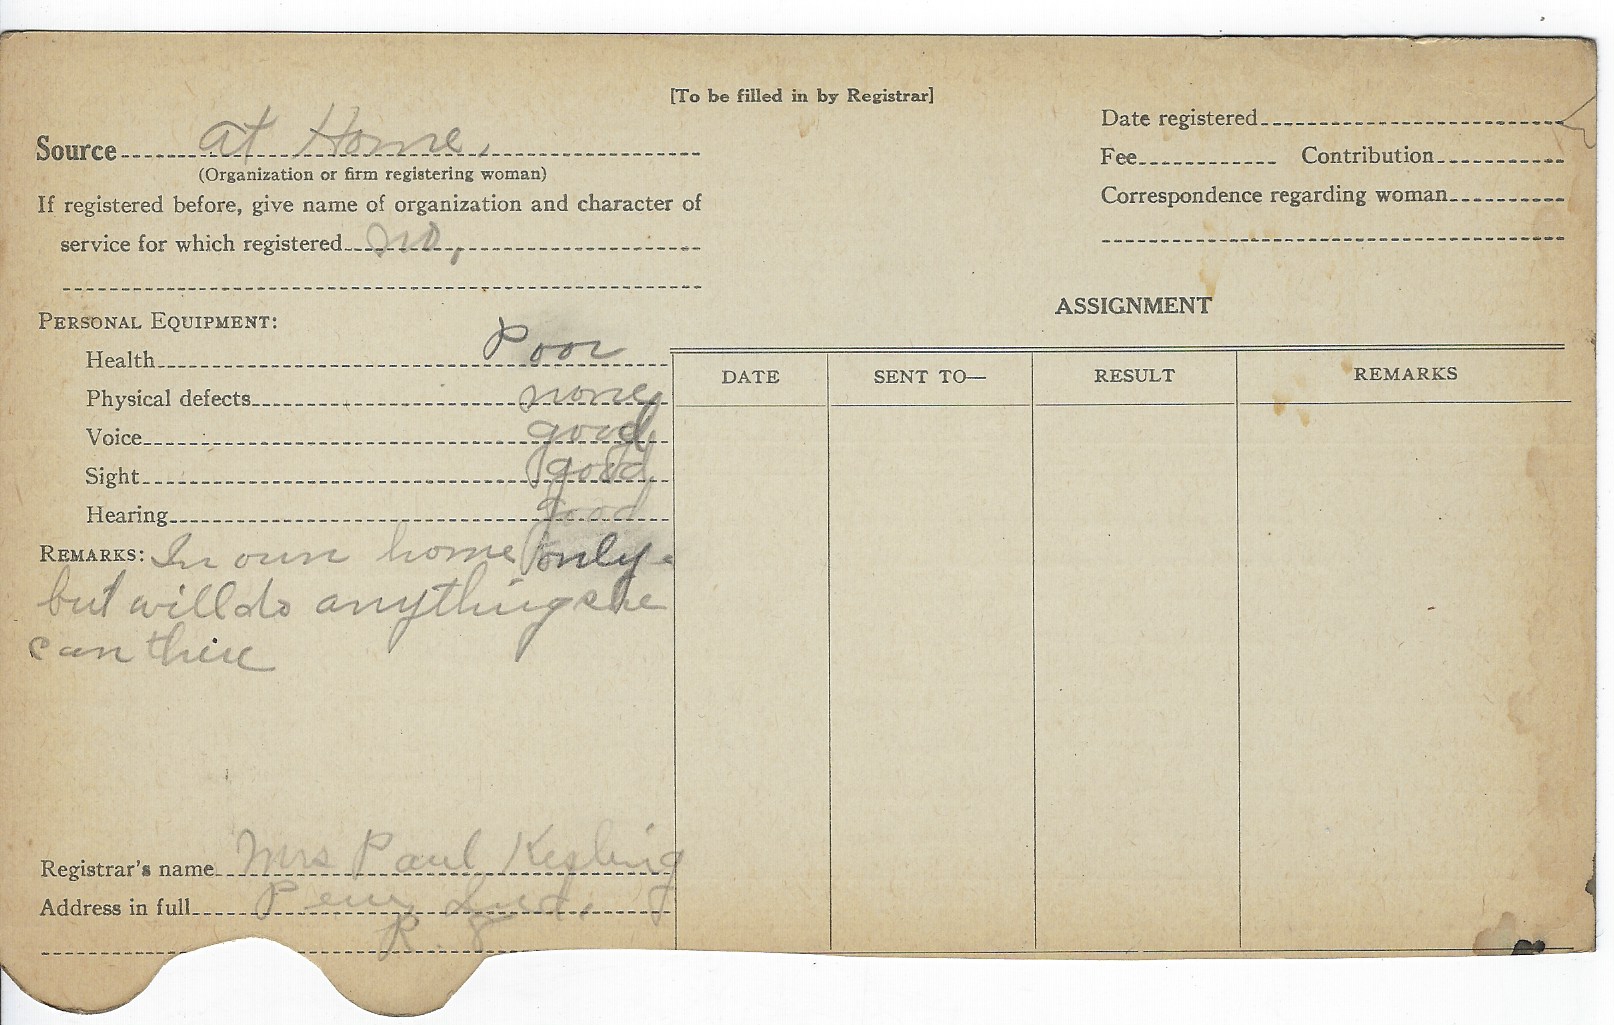 [To be filled in by Registrar]
Source at Home.
(Organization or firm registering woman)
If registered before, give name of organization and character of
service for which registered no.
Date registered
Fee Contribution
Correspondence regarding woman
PERSONAL EQUIPMENT:
Health Poor
Physical defects none
Voice good
Sight good
Hearing good
REMARKS: In own home only-
but will do anything she
can there
Registrar's name Mrs Paul Kesling
Address in full Peru Ind.
R. 8
ASSIGNMENT
DATE SENT TO— RESULT REMARKS